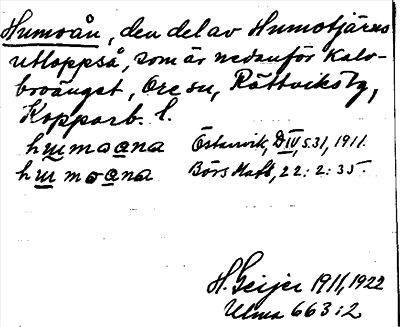 Humoån, den del av Humotjärns
utloppså, som är nedanför Kalv-
broänget, Ore sn, Rättviks tg,
Kopparb. l.
humoana Östanvik, D IV, s. 31, 1911.
humoana Börs Matt, 22:2:35.
H. Geijer 1911, 1922
Ulma 663:2